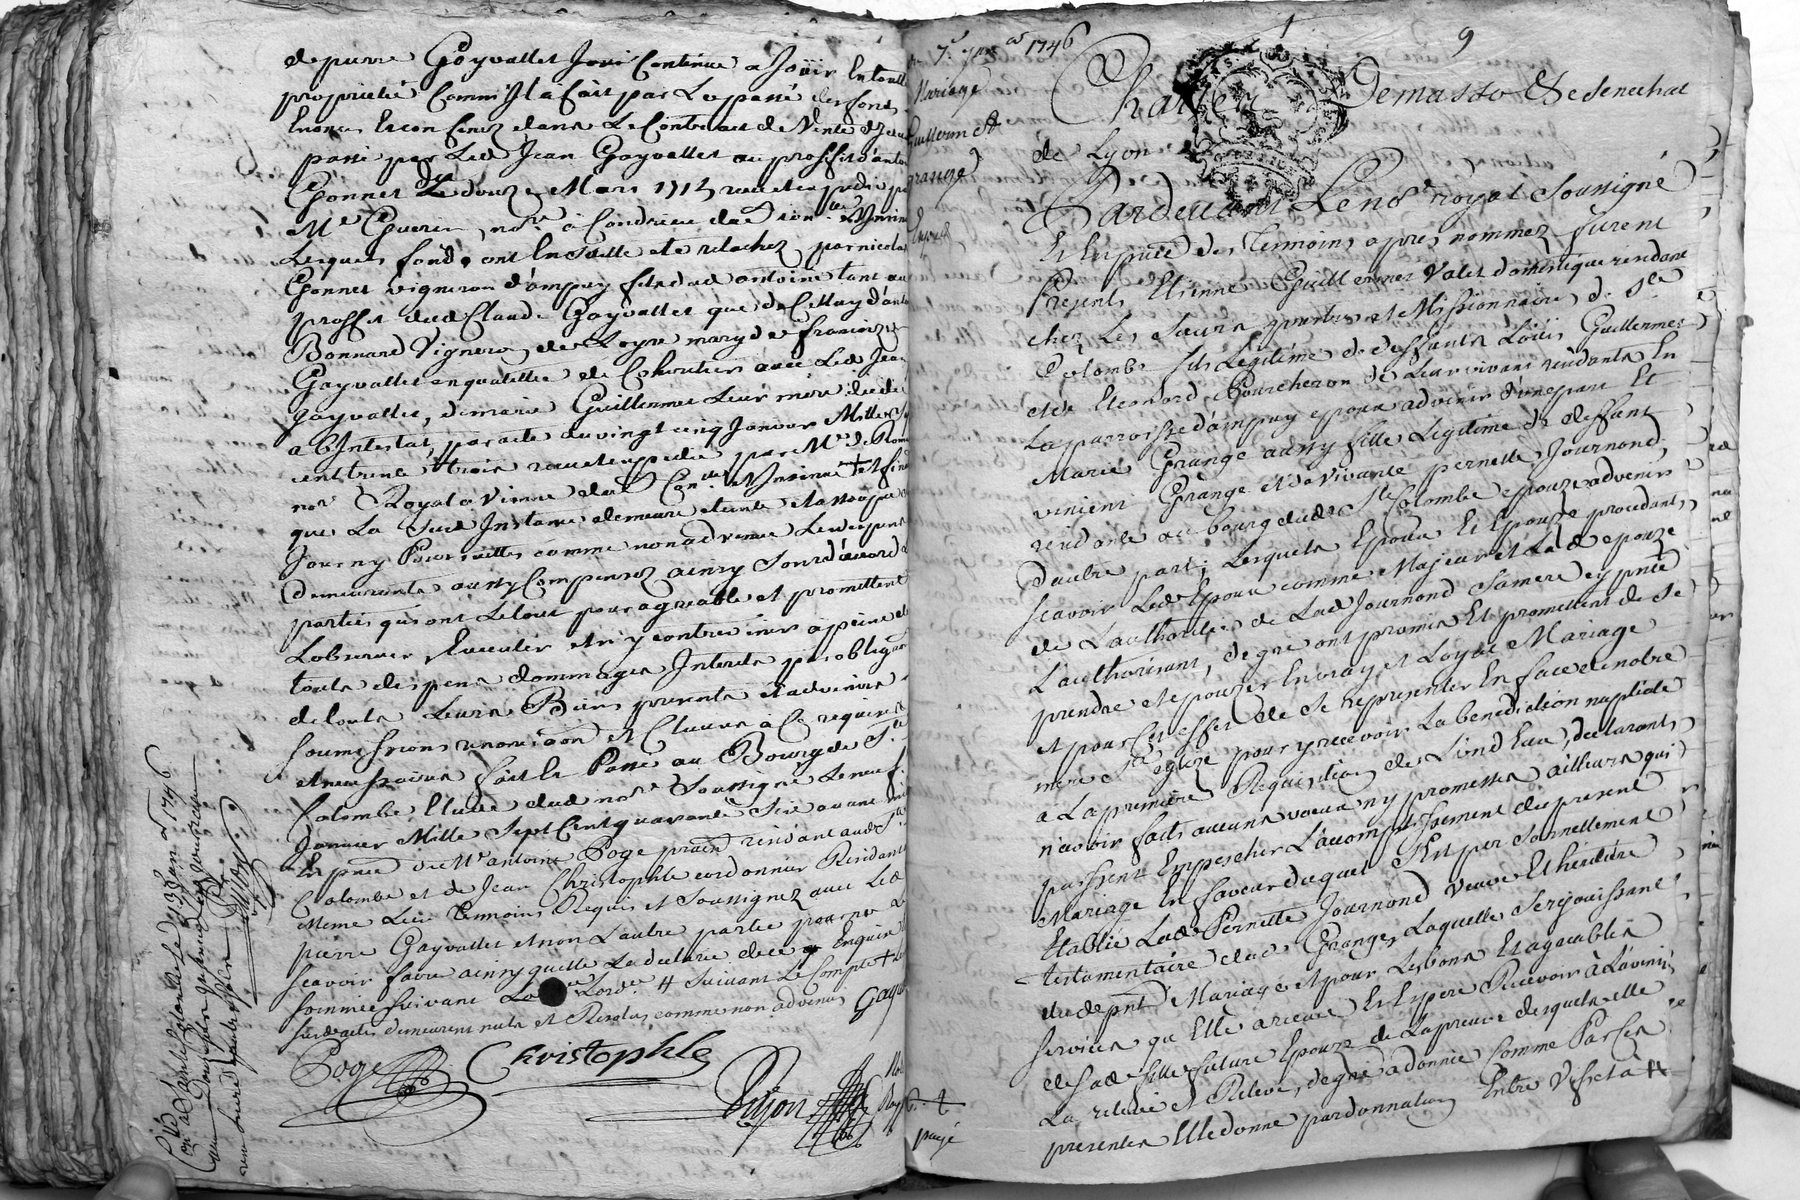 de pierre Gayvallet Joui Continue a Jouir En toutte
proprieté Comm Il a fait par Le passé des fonds
Enoncez Et con finez dans Le Contract de Vente
passé par Led Jean Gayvallet au proffit d'anto
Gonnet Le douze Mars 1715 receu expedié p
Me Guerin, nore à Condrieu
Lesquels fonds ont Ensuitte eté relachez par nicolas
Gonnet vigneron d'ampuy fils dud antoine tant au
proffit dud Claude Gayvallet que de Celluy d'anto
Bonnard Vigneron de Loyre mary de francoize
Gayvallet en qualitté de Cohéritiers avec Led Jean
gayvallet, de marie Guillermet Leur mère decedé
ab Intestat, par acte du vingt cinq Janvier Mille Sep
cent trente trois receu et expedié par Me De Rom
nore Royal a Vienne
que La Sud Instance demeure eteinte et assoupie
Jour ny Poursuittes comme non advenue Les depens
demeurants aussy Compensez ainsy Sont d'acord
parties qui ont Le tout pour agreable et promettent
L'observer, Executer et n'y contrevenir a peine de
touts depens dommages Interests par obligaon
de touts Leurs Biens presents et advenir
soumissions renonciaon et Clauses à Ce requises
fait Et Passé au Bourg de Ste
Colombe Etude dud nore Soussigné Le neuf
Janvier Mille Sept Cent quarante Six avant midi
En pnce de Mr antoine Poge praen residant aud Ste
Colombe et de Jean Christophle cordonnier Residant
Meme Lieu temoins Requis et Soussignez avec Led
pierre Gayvallet et non L'autre partie pour ne
scavoir faire ainsy quelle La declaré de ce Enquise
sommée suivant Lordce # suivant Le Compte
Susd actes demeurent nuls et Resolus comme non advenus
Gayv
Poge
Christophle
Dujon
Con a Ste Colombe Le 13e Jan 1746
7e janer 1746
Mariage
Guillermet
grange
payé
9
Charles Demasso Se Senechal
de Lyon
Pardevant Le nore royal Soussigné
Et En pnce des temoins apres nommez furent
Presents Etienne Guillermet Valet domestique residant
chez Les Sieurs pretres et Missionnaires de Ste
Colombe fils Legitime de deffunts Loüis Guillermet
et de Eleonord Pourcheron de Leur vivant residants En
La parroisse d'ampuy epoux advenir d'une part Et
Marie Grange aussy fille Legitime de deffunt
vincent Grange et de Vivante pernette Journond
residante au bourg dud Ste Colombe epouze advenir
d'autre part; Lesquels Epoux Et Epouze procedants,
scavoir Led Epoux comme Majeur et Lad epouze
de L'authorité de Lad Journond Samere cy pnte
L'authorisant, de gré ont promis Et promettent de Se
prendre et epouzer En vray et Loyal Mariage
et pour Cet effet de Se representer En face de notre
mere Ste eglize pour y recevoir La benediction nuptiale
a La premiere Requisition de L'und Eux, declarants,
n'avoir faits aucuns voeux ny promesses ailleurs qui
puissent Empescher L'acomplissement du present
Mariage En faveur duquel S'est personnellement
Etablie Lad Pernette Journond Veuve Et héritière
testamentaire dud Grange, Laquelle Se rejouissant
dud pnt Mariage et pour Les bons Et agreables
services qu Elle a receu Et Espere Recevoir à L'avenir
de Sad fille future Epouze de La preuve desquels elle
La releve et Releve, de gré a donnée Comme Par Ces
presentes Elle donne par donnation Entre Vifs et a #